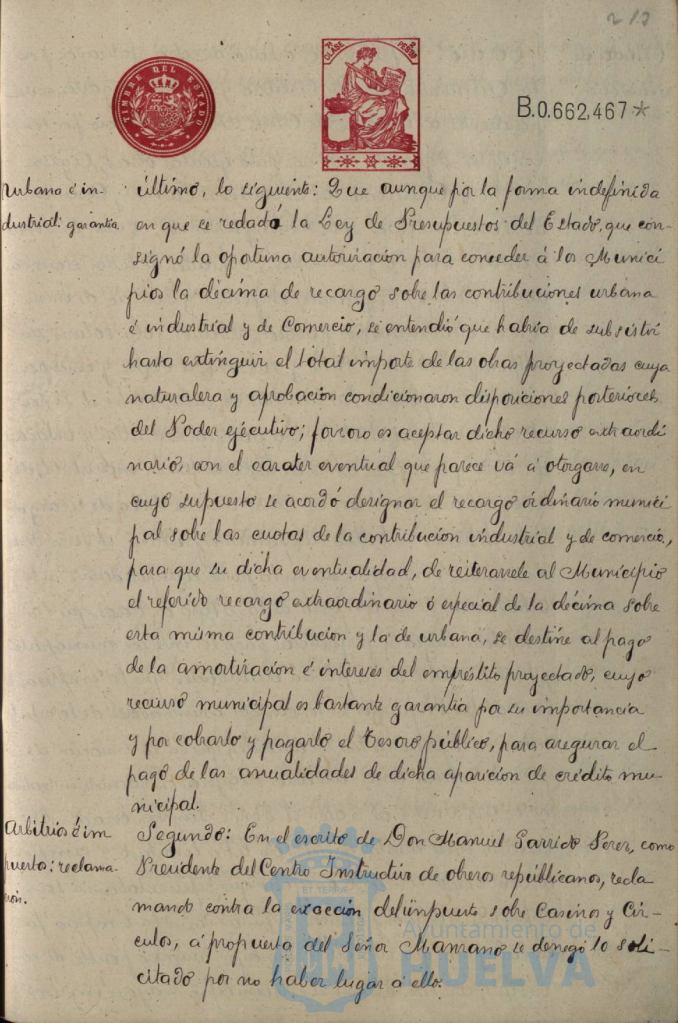 213
TIMBRE DEL ESTADO
7ª CLASE 2 PESETAS
B.0.662,467*
Urbano é in-
dustrial: garantia.
último, lo siguiente: Que aunque por la forma indefinida
en que se redadó la Ley de Presupuestos del Estado, que con-
signó la oportuna autorización para conceder á los Munici
pios la décima de recargo sobre las contribuciones urbana
é industrial y de Comercio, se entendió que habria de subsistir
hasta extinguir el total importe de las obras proyectadas cuya
naturalera y aprobacion condicionaron disposiciones posteriores
del Poder ejécutivo; forzoro es aceptar dicho recurso extraordi
nario, con el carater eventual que parece vá á otorgarse, en
cuyo supuesto se acordó designar el recargo órdinario munici
pal sobre las cuotas de la contribucion industrial y de comercio,
para que su dicha eventualidad, de reiterarsele al Municipio
el referido recargo extraordinario ó especial de la décima sobre
esta misma contribucion y la de urbana, se destine al pago
de la amortizacion é intereses del empréstito proyectado, cuyo
recurso municipal es bastante garantia por su importancia
y por cobrarlo y pagarlo el Tesoro público, para asegurar el
pago de las anualidades de dicha aparicion de crédito mu-
nicipal.
Arbitrios é im
puestos: reclama-
ción.
Segundo: En el escrito de Don Manuel Garrido Perez, como
Presidente del Centro Instructivo de obreros repúblicanos, recla
mando contra la exacción del impuesto sobre Casinos y Cir-
culos, á propuesta del Señor Manzano se denegó lo soli-
citado por no haber lugar á ello.
Ayuntamiento de
HUELVA